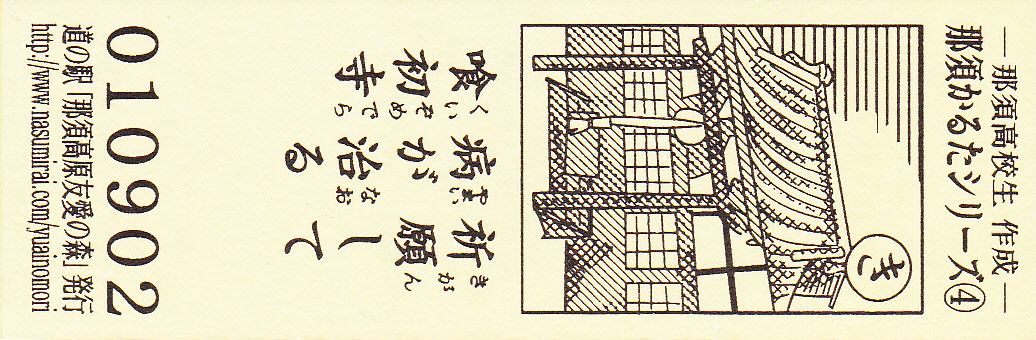 ―那須高校生 作成―
那須かるたシリーズ④
き
祈願して
きがん
病が治る
やまい なお
喰初寺
くいぞめでら
010902
道の駅「那須高原友愛の森」発行
http://www.nasumirai.com/yuainomori